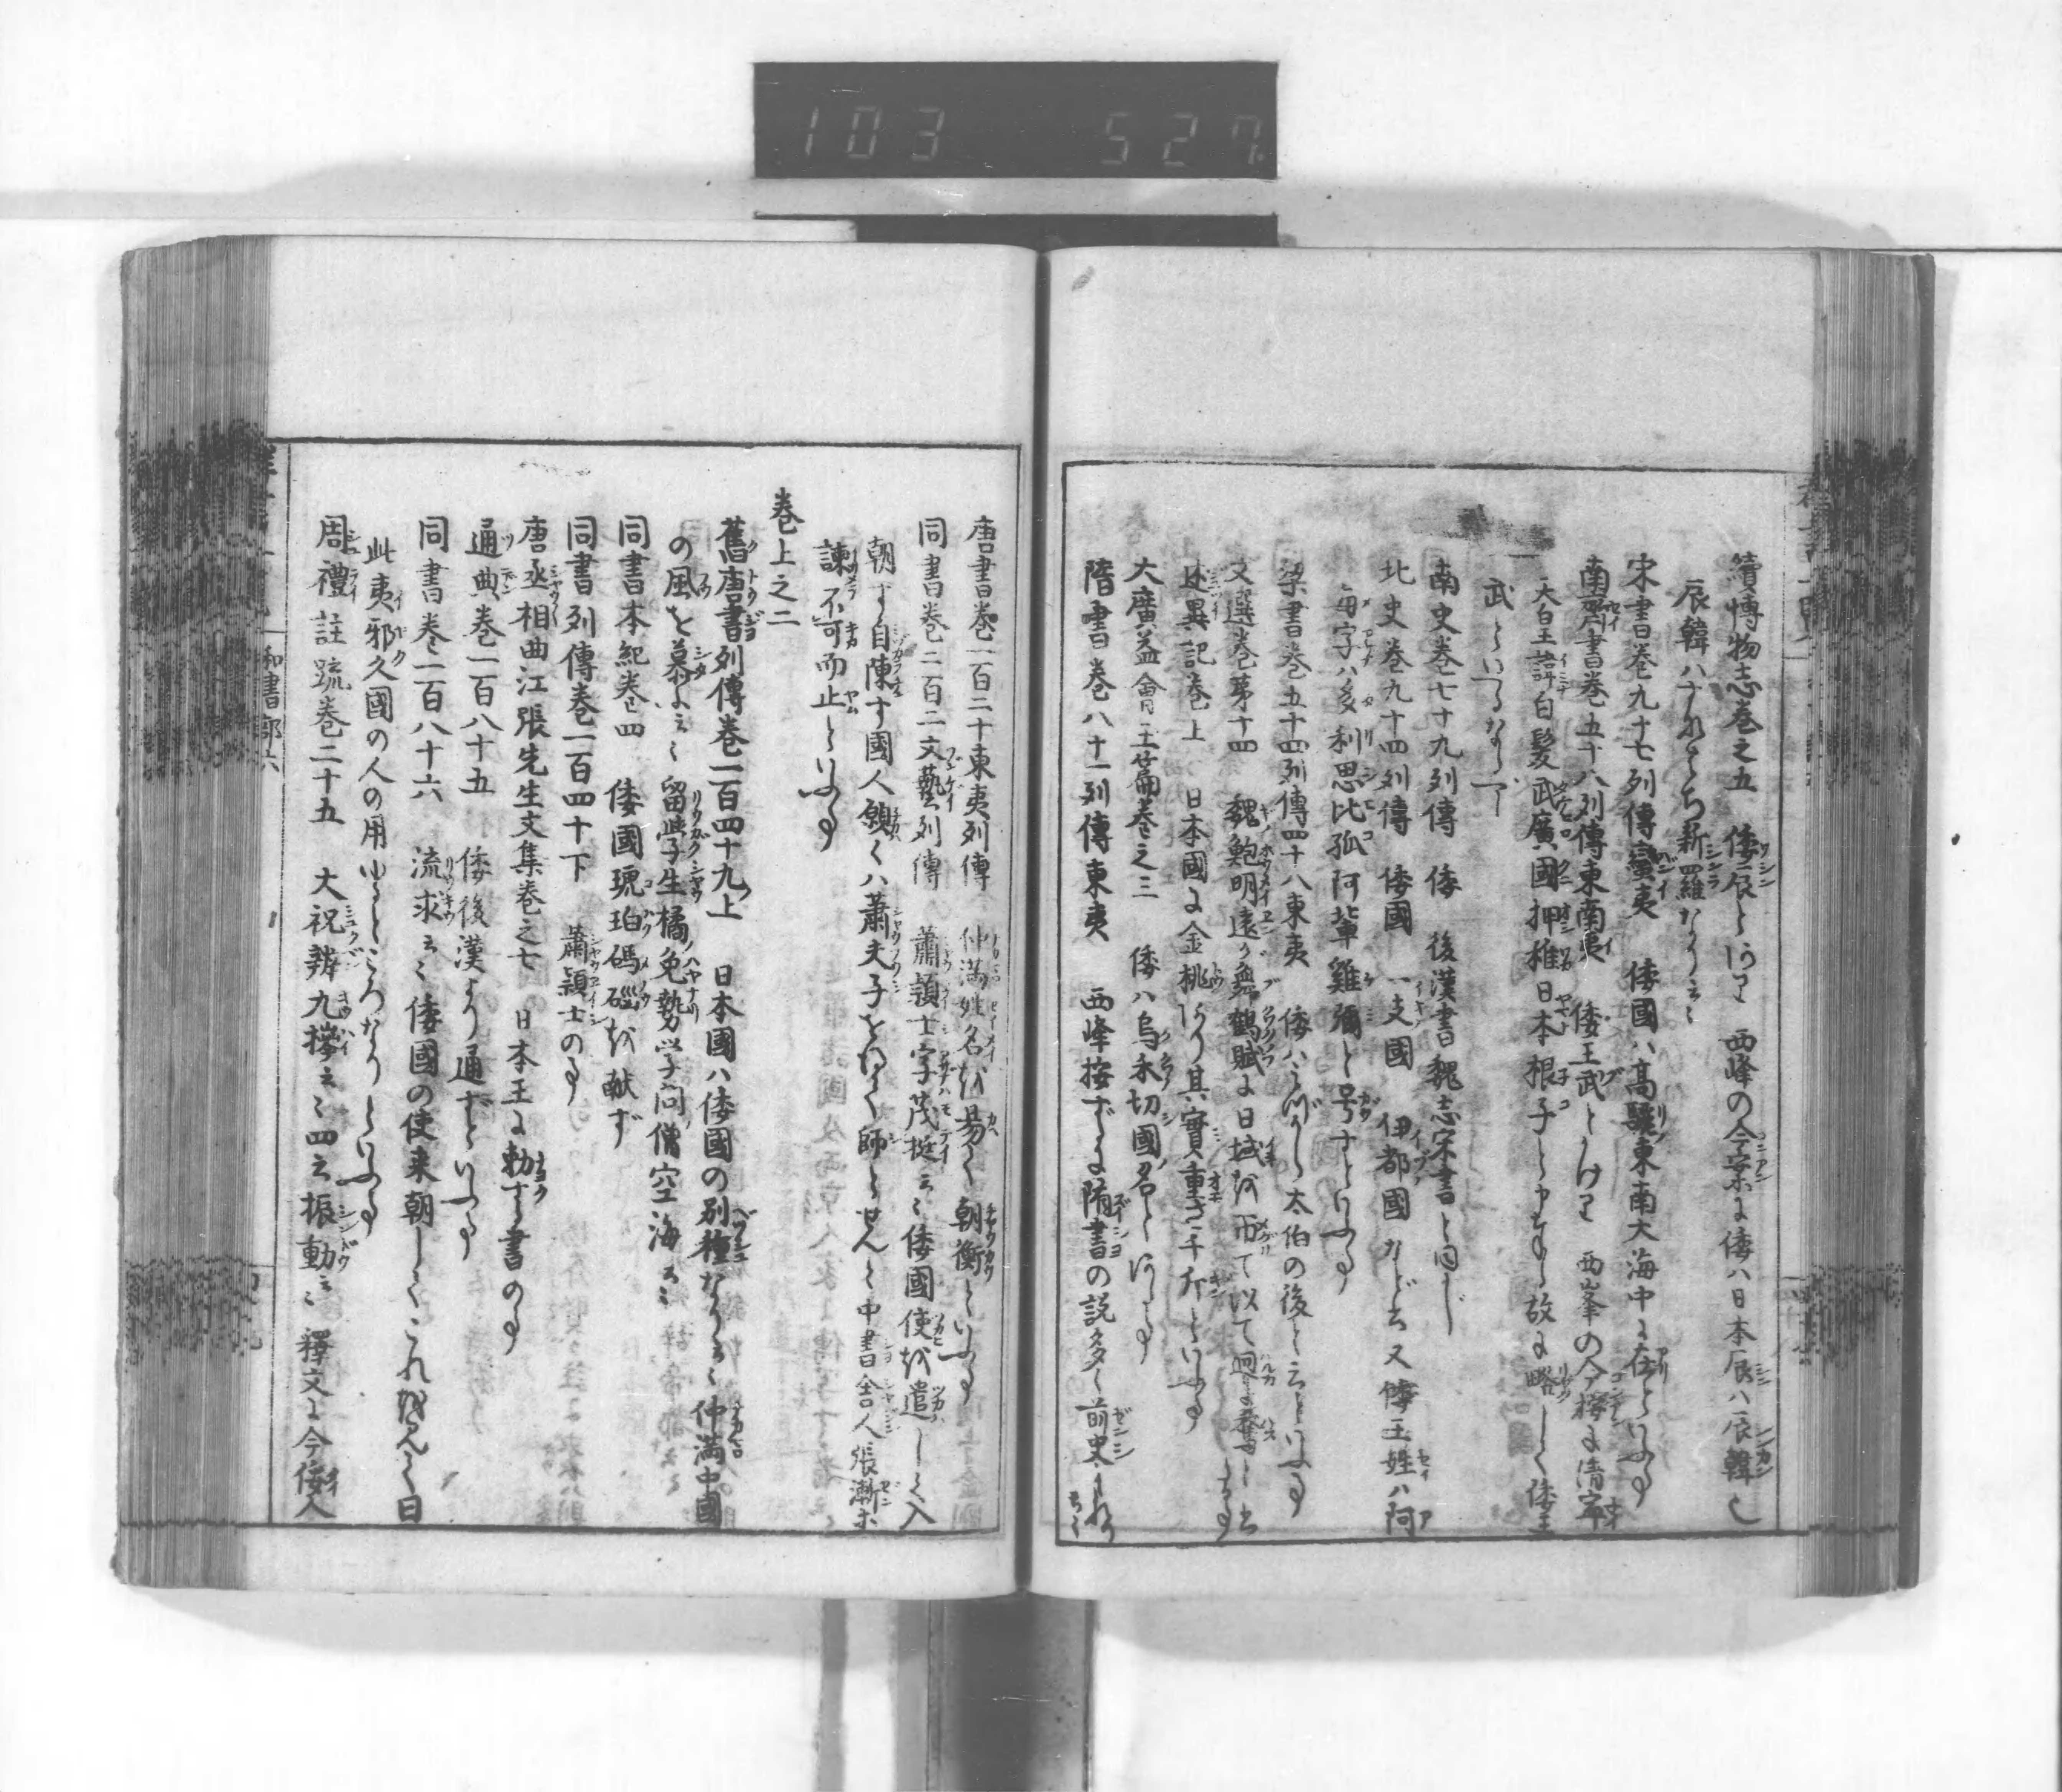 103 527
續博物志巻之五 倭辰とあり 西峰の今案に倭ハ日本辰ハ辰韓也
辰韓ハすなハち新羅なり云々
宋書巻九十七列傳蠻夷 倭國ハ高驪東南大海中に在といふ事
南齊書巻五十八列傳東南夷 倭王武とあけり 西峯の今按に清寧
天皇諱白髮武廣國押稚日本根子と申奉る故に略して倭王
武といへるならし
南史巻七十九列傳 倭 後漢書魏志宋書と同し
北史巻九十四列傳 倭國 一支國 伊都國などゝ云又倭王姓ハ阿
每字ハ多利思比孤阿輩雞彌と号すといふ事
梁書巻五十四列傳四十八東夷 倭ハみづから太伯の後と云といふ事
文選巻第十四 魏鮑明遠か舞鶴賦に日域を帀て以て迥に
述異記巻上 日本國に金桃あり其實重さ一斤といふ事
大廣益會玉篇巻之三 倭ハ烏禾切國名とある事
隋書巻八十一列傳東夷 西峰按ずるに隋書の説多く前史
唐書巻一百二十東夷列傳 仲滿姓名を易て朝衡といふ事
同書巻二百二文藝列傳 蕭頴士字茂挺云々倭國使を遣して入
朝す自陳す國人願くハ蕭夫子を得て師とせんと中書舎人張漸等
諫不可而止といふ事
巻上之二
舊唐書列傳巻一百四十九上 日本國ハ倭國の別種なり云々仲満中國
の風を慕ふ云々留學生橘免勢学問僧空海云々
同書本紀巻四 倭國琥珀碼碯を献ず
同書列傳巻一百四十下 蕭頴士の事
唐丞相曲江張先生文集巻之七 日本王に勅する書の事
通典巻一百八十五 倭後漢より通ずといふ事
同書巻一百八十六 流求云々倭國の使来朝してこれを見て曰
此夷邪久國の人の用ゆるところなりといふ事
周禮註疏巻二十五 大祝辨九𢷎云々四云振動云々釋文に今倭人
和書部六